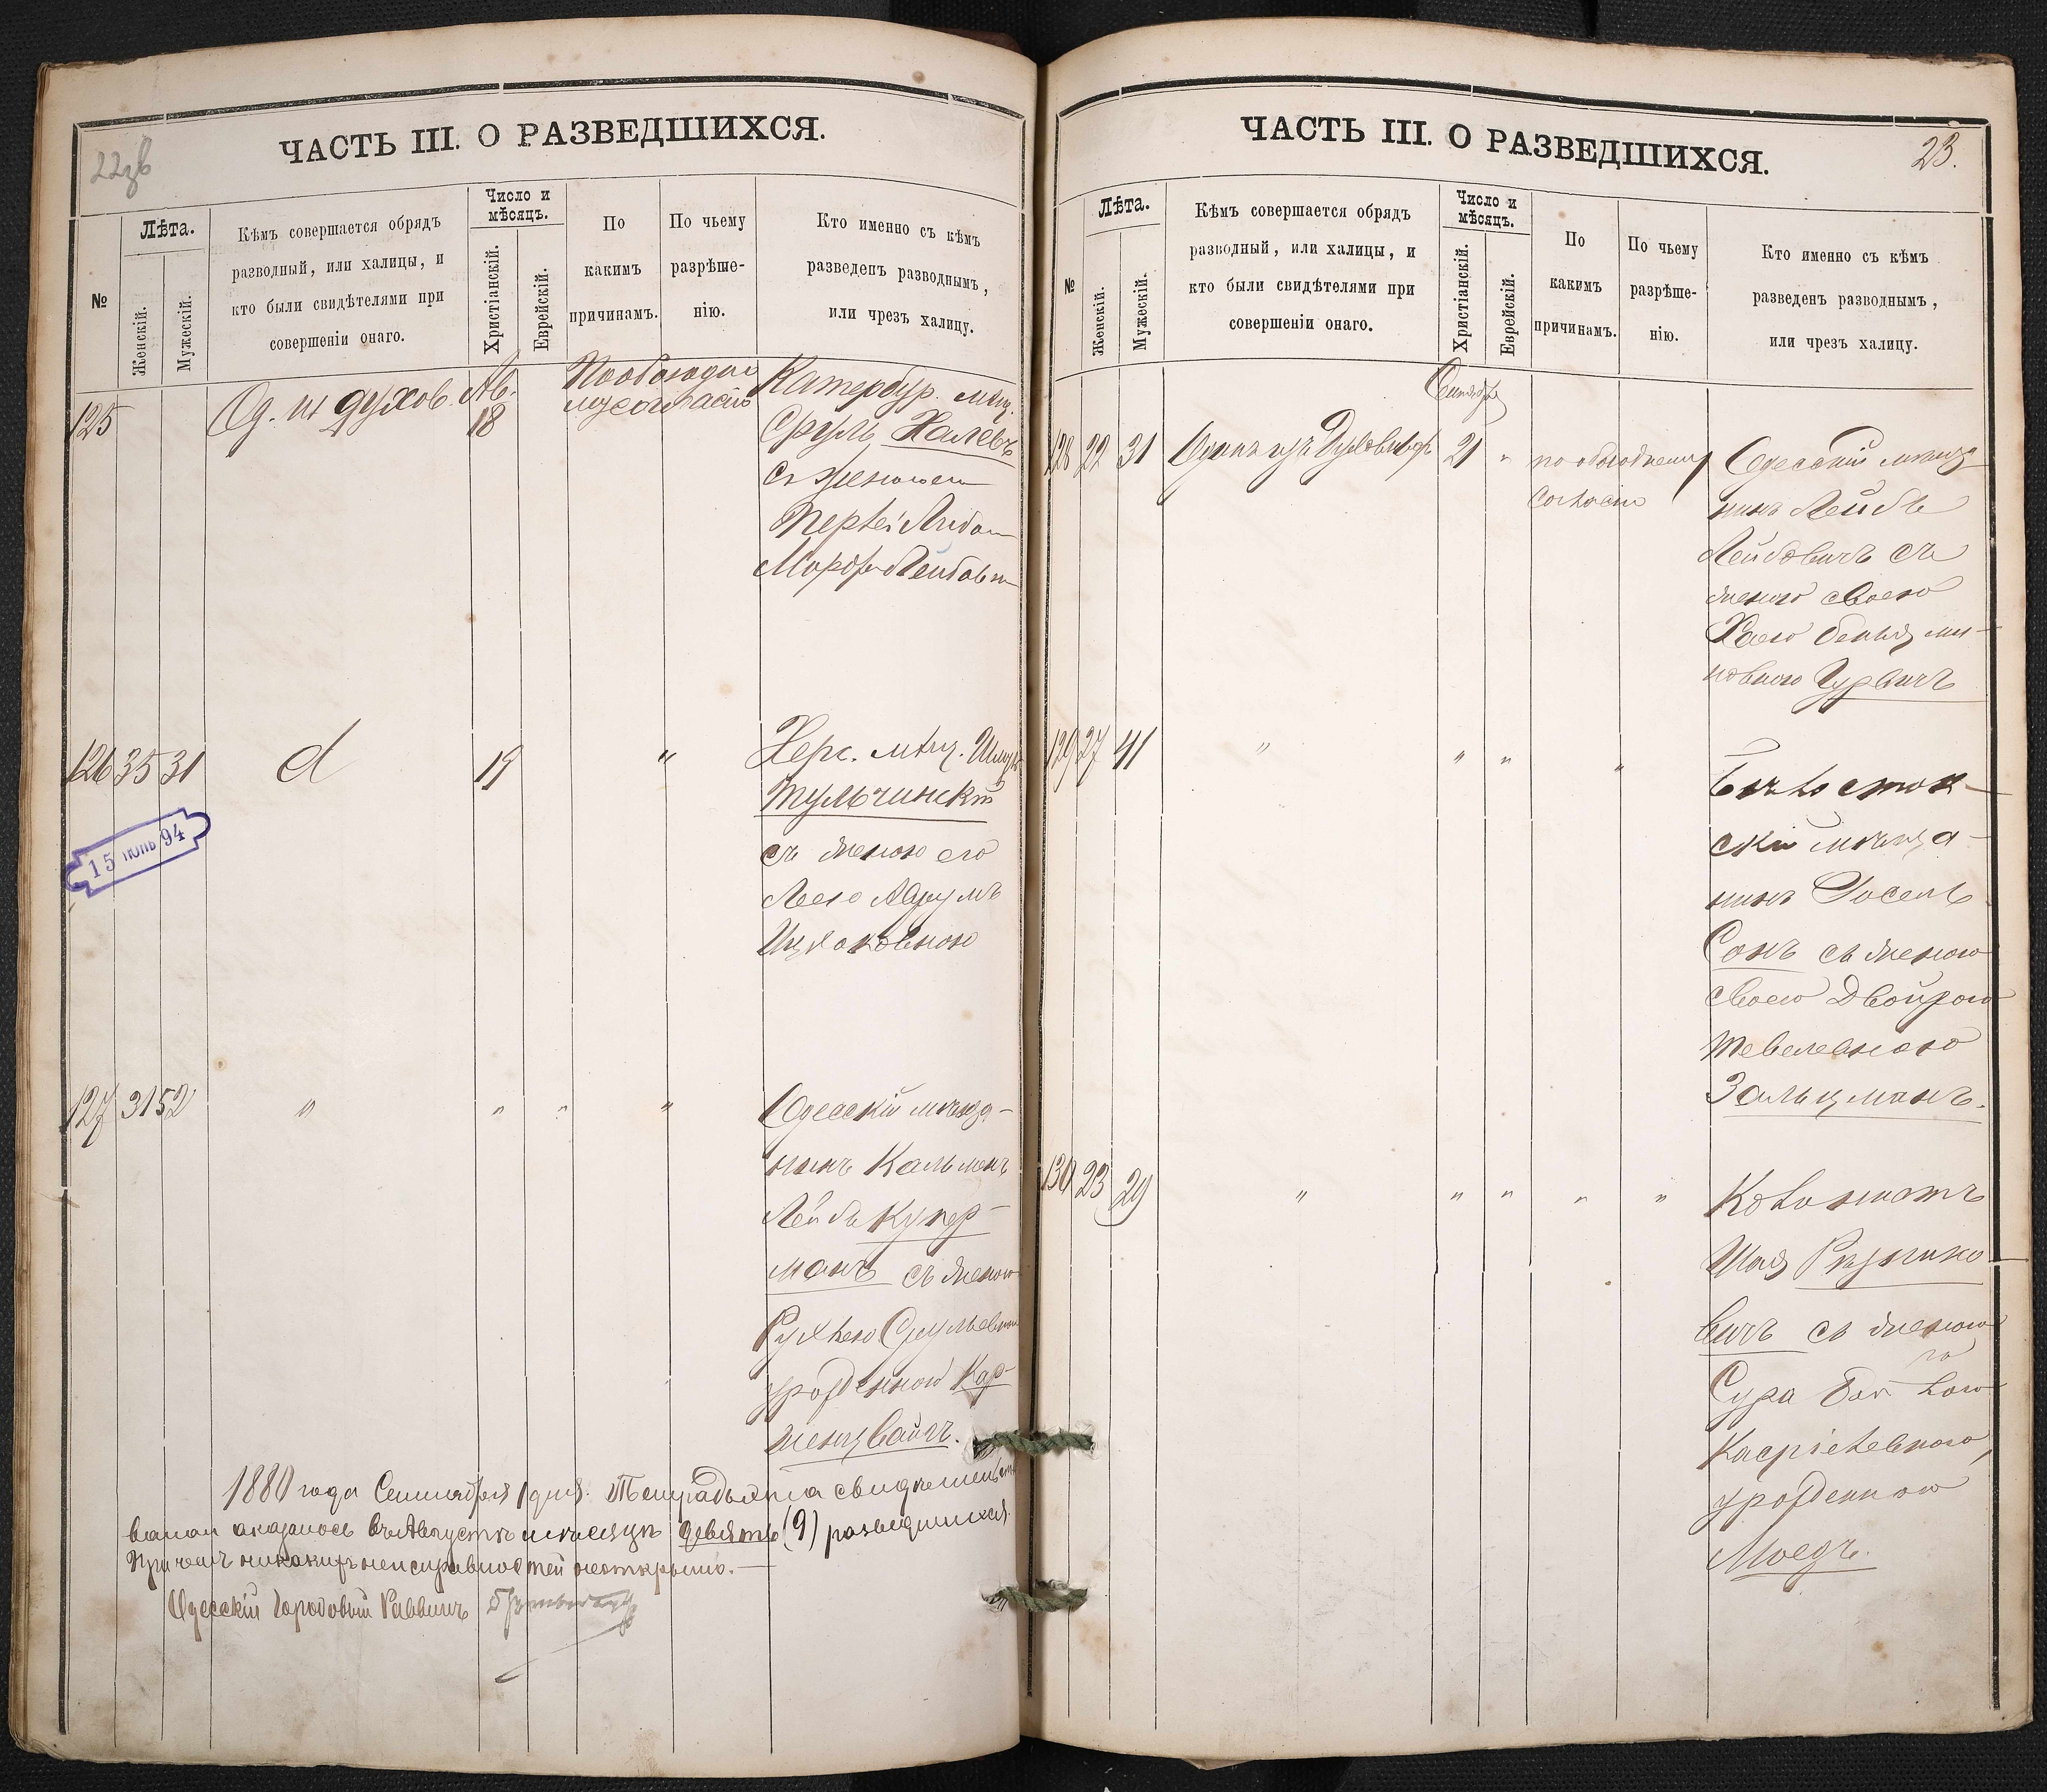 ЧАСТЬ III. О РАЗВЕДШИХСЯ.
№
Лѣта.
Женскій.
Мужескій.
Кѣмъ совершается обрядъ
разводный, или халицы, и
кто были свидѣтелями при
совершеніи онаго.
Число и
мѣсяцъ.
Христіанскій.
Еврейскій.
По
какимъ
причинамъ.
По чьему
разрѣше-
нію.
Кто именно съ кѣмъ
разведенъ разводнымъ,
или чрезъ халицу.
125
Од. из духов.
Ав.
18
По обоюдно
му согласію
Катербур. мѣщ.
Сруль Халевъ
съ женою
126 35 31
d
19
"
Херс. мѣщ.
Тульчинскій
съ женою его
Леею
Ицхоковною
15 ІЮНЬ 94
127 31 52
" " " "
Одесскій мѣща-
нинъ Кальменъ
Лейбъ Купер-
манъ съ женою
Рухлею Срулевною
урожденною Кар-
женцвайгъ.
1880 года Сентября 1 дня. Тетрадь эта свидѣтельст
вована оказалось въ Августѣ мѣсяцѣ девять (9) разведшихся.
Причемъ никакихъ неисправностей не открыто.
Одесскій Городовый Раввинъ
ЧАСТЬ III. О РАЗВЕДШИХСЯ.
23.
№
Лѣта.
Женскій.
Мужескій.
Кѣмъ совершается обрядъ
разводный, или халицы, и
кто были свидѣтелями при
совершеніи онаго.
Число и
мѣсяцъ.
Христіанскій.
Еврейскій.
По
какимъ
причинамъ.
По чьему
разрѣше-
нію.
Кто именно съ кѣмъ
разведенъ разводнымъ,
или чрезъ халицу.
Сентябрь
128 22 31 Одинъ изъ Духовныхъ 21 " по обоюдному
согласію
Одесскій мѣща-
нинъ Лейбъ
Лейбовичъ съ
женою своею
Хаею Беньями-
новною Гурвичъ
129 27 41 " " " "
Бѣлосток-
скій мѣща-
нинъ Іосель
Сонъ съ женою
своею Двойрою
Тевелевною
Зальцманъ.
130 23 29 " " " " "
Колонистъ
Шая Рабино-
вичъ съ женою
Сура
Касріелевною,
урожденною
Моедъ.